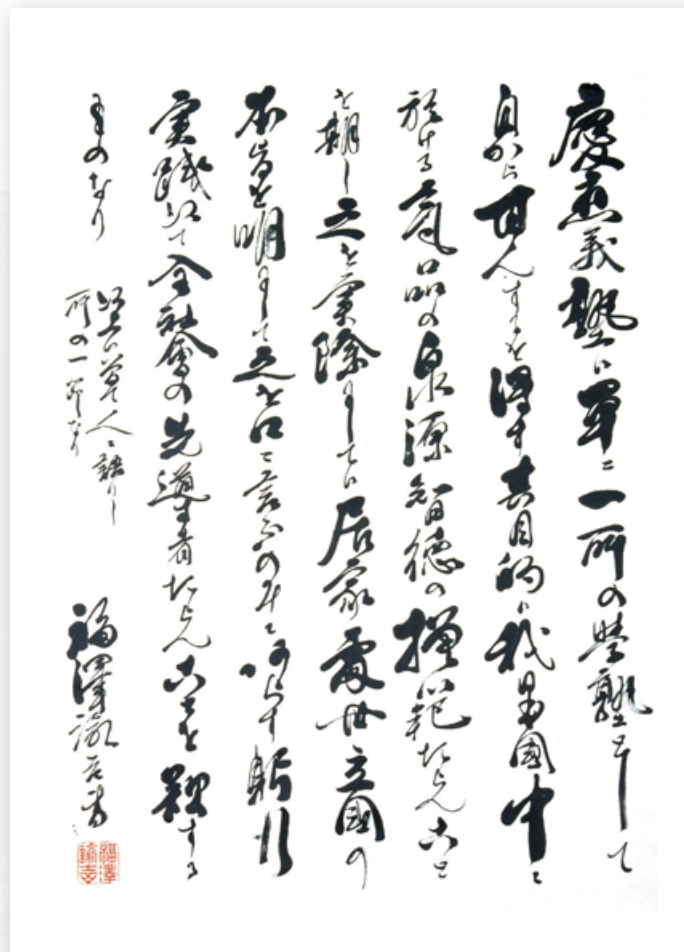 慶應義塾ハ單ニ一所の學塾として
自から甘んするを得す其目的ハ我日本國中ニ
於ける氣品の泉源智徳の模範たらんこと
を期し之を實際にしてハ居家處世立國の
本旨を明にして之を口ニ言ふのみニあらす躬行
実踐以て全社會の先導者たらんことを欲する
ものなり
以上ハ曽て人ニ語りし
所の一節なり
福澤諭吉書
福澤諭吉